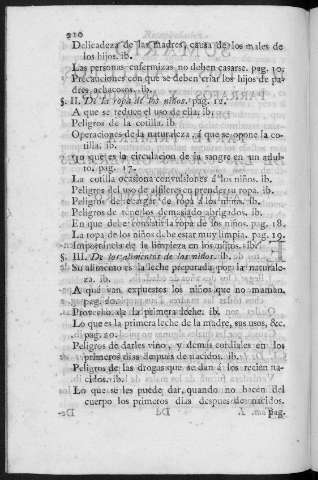 210
Delicadeza de las madres, causa de los males de
los hijos. ib.
Las personas enfermizas no deben casarse. pag. 10.
Precauciones con que se deben criar los hijos de pa-
dres achacosos. ib.
§. II. De la ropa de los niños. pag. 12.
A que se reduce el uso de ella. ib.
Peligros de la cotilla. ib
Operaciones de la naturaleza, á que se opone la co-
tilla. ib.
Lo que es la circulacion de la sangre en un adul-
to. pag. 17.
La cotilla ocasiona convulsiones á los niños. ib.
Peligros del uso de alfileres en prender su ropa. ib.
Peligro de recargar de ropa á los niños. ib.
Peligros de tenerlos demasiado abrigados. ib.
En que debe consistir la ropa de los niños. pag. 18.
La ropa de los niños debe estar muy limpia. pag. 19.
Importancia de la limpieza en los niños. ib.
§. III. De los alimentos de los niños. ib.
Su alimento es la leche preparada por la naturale-
za. ib.
A qué van expuestos los niños que no maman.
pag. 20.
Provecho de la primera leche. ib.
Lo que es la primera leche de la madre, sus usos, &c.
pag. 20.
Peligros de darles vino, y demas cordiales en los
primeros dias despues de nacidos. ib.
Peligros de las drogas que se dan á los recien na-
cidos. ib.
Lo que se les puede dar, quando no hacen del
cuerpo los primeros dias despues de nacidos.
pag.